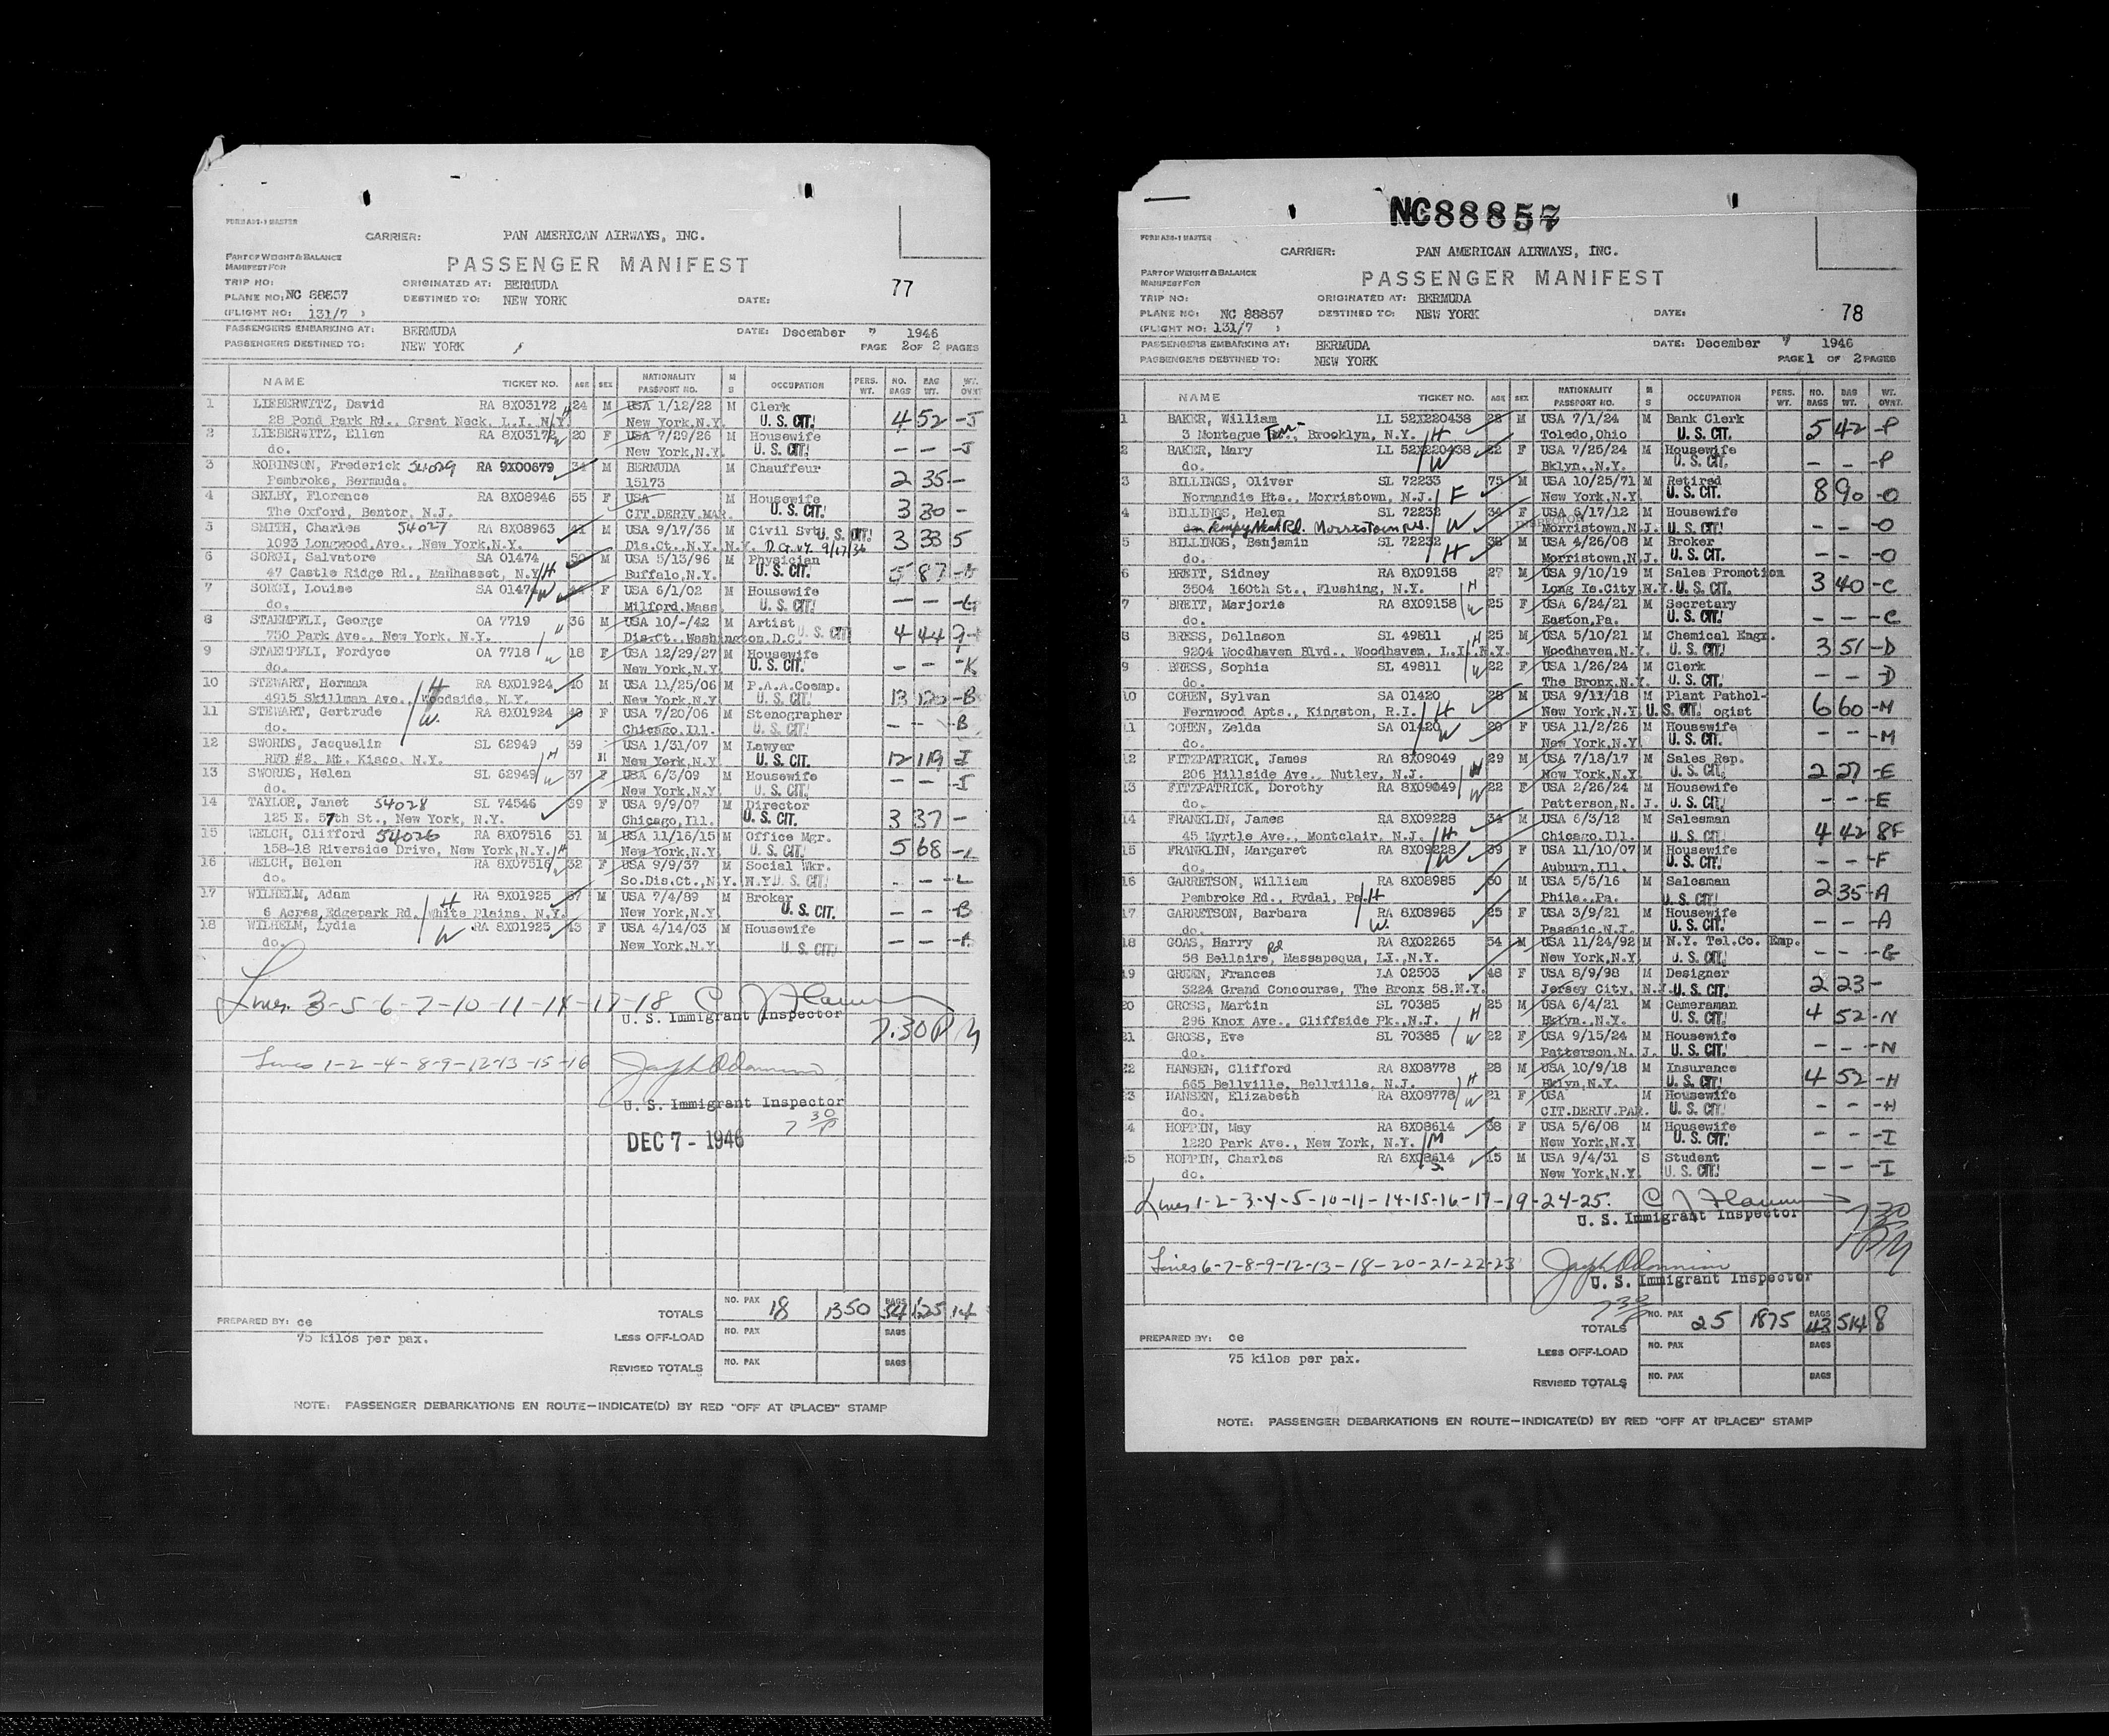 FORM AD1-1 MASTER
CARRIER: PAN AMERICAN AIRWAYS, INC.
PART OF WEIGHT & BALANCE
MANIFEST FOR
PASSENGER MANIFEST
77
TRIP NO:
ORIGINATED AT: BERMUDA
PLANE NO: NC 88857
DESTINED TO: NEW YORK
DATE:
(FLIGHT NO: 131/7 )
PASSENGERS EMBARKING AT: BERMUDA
DATE: December 7 1946
PASSENGERS DESTINED TO: NEW YORK
PAGE 2 OF 2 PAGES
NAME TICKET NO. AGE SEX NATIONALITY PASSPORT NO. M S OCCUPATION PERS. WT. NO. BAGS BAG WT. WT. OVNT
1 LIEBERWITZ, David RA 8X03172 24 M USA 1/12/22 M Clerk 4 52 -J
28 Pond Park Rd., Great Neck, L.I. N.Y. H New York,N.Y. U. S. CIT.
2 LIEBERWITZ, Ellen RA 8X03172 W 20 F USA 7/29/26 M Housewife - - -J
do. New York,N.Y. U. S. CIT.
3 ROBINSON, Frederick 54029 RA 9X00679 34 M BERMUDA M Chauffeur 2 35 -
Pembroke, Bermuda. 15173
4 SELBY, Florence RA 8X08946 55 F USA M Housewife 3 30 -
The Oxford, Bentor, N.J. CIT.DERIV.MAR. U. S. CIT.
5 SMITH, Charles 54027 RA 8X08963 41 M USA 9/17/36 M Civil Svt U. S. CIT. 3 33 5
1093 Longwood,Ave., New York,N.Y. Dis.Ct.,N.Y. N.Y. 9/17/36
6 SORGI, Salvatore SA 01474 50 M USA 5/13/96 M Physician 5 87
47 Castle Ridge Rd., Manhasset, N.Y. H Buffalo,N.Y. U. S. CIT.
7 SORGI, Louise SA 01474 W 44 F USA 6/1/02 M Housewife - -
do. Milford,Mass. U. S. CIT.
8 STAEMPFLI, George OA 7719 36 M USA 10/-/42 M Artist 4 44
730 Park Ave., New York, N.Y. H Dis.Ct., Washington,D.C. U. S. CIT.
9 STAEMPFLI, Fordyce OA 7718 W 18 F USA 12/29/27 M Housewife - - -K
do. New York,N.Y. U. S. CIT.
10 STEWART, Herman H RA 8X01924 40 M USA 11/25/06 M P.A.A.Coemp. 13 120 -B
4915 Skillman Ave., Woodside, N.Y. New York,N.Y. U. S. CIT.
11 STEWART, Gertrude W. RA 8X01924 40 F USA 7/20/06 M Stenographer - - -B
do. Chicago,Ill. U. S. CIT.
12 SWORDS, Jacquelin SL 62949 39 USA 1/31/07 M Lawyer 12 119 -I
RFD #2, Mt. Kisco, N.Y. H M New York,N.Y. U. S. CIT.
13 SWORDS, Helen SL 62949 W 37 F USA 6/3/09 M Housewife - - -I
do. New York,N.Y. U. S. CIT.
14 TAYLOR, Janet 54028 SL 74546 39 F USA 9/9/07 M Director 3 37 -
125 E. 57th St., New York, N.Y. Chicago,Ill. U. S. CIT.
15 WELCH, Clifford 54026 RA 8X07516 31 M USA 11/16/15 M Office Mgr. 5 68 -L
158-18 Riverside Drive, New York,N.Y. H New York,N.Y. U. S. CIT.
16 WELCH, Helen RA 8X07516 W 32 F USA 9/9/37 M Social Wkr. - - -L
do. So.Dis.Ct.,N.Y. N.Y. U. S. CIT.
17 WILHELM, Adam H RA 8X01925 57 M USA 7/4/89 M Broker - - -B
6 Acres,Edgepark Rd. White Plains, N.Y. New York,N.Y. U. S. CIT.
18 WILHELM, Lydia W RA 8X01925 43 F USA 4/14/03 M Housewife - -
do. New York,N.Y. U. S. CIT.
Lines 3-5-6-7-10-11-14-17-18
U. S. Immigrant Inspector
7.30 P M
Lines 1-2-4-8-9-12-13-15-16
U. S. Immigrant Inspector
7 30 P
DEC 7 - 1946
TOTALS NO. PAX 18 1350 BAGS 54 625 14
PREPARED BY: ce
75 kilos per pax.
LESS OFF-LOAD NO. PAX BAGS
REVISED TOTALS NO. PAX BAGS
NOTE: PASSENGER DEBARKATIONS EN ROUTE—INDICATE(D) BY RED "OFF AT (PLACE)" STAMP
NC88857
FORM AD1-1 MASTER
CARRIER: PAN AMERICAN AIRWAYS, INC.
PART OF WEIGHT & BALANCE
MANIFEST FOR
PASSENGER MANIFEST
78
TRIP NO:
ORIGINATED AT: BERMUDA
PLANE NO: NC 88857
DESTINED TO: NEW YORK
DATE:
(FLIGHT NO: 131/7 )
PASSENGERS EMBARKING AT: BERMUDA
DATE: December 7 1946
PASSENGERS DESTINED TO: NEW YORK
PAGE 1 OF 2 PAGES
NAME TICKET NO. AGE SEX NATIONALITY PASSPORT NO. M S OCCUPATION PERS. WT. NO. BAGS BAG WT. WT. OVNT
1 BAKER, William LL 52X220438 22 M USA 7/1/24 M Bank Clerk 5 42 -P
3 Montague Terr., Brooklyn, N.Y. H Toledo,Ohio U. S. CIT.
2 BAKER, Mary LL 52X220438 22 F USA 7/25/24 M Housewife - - -P
do. W Bklyn.,N.Y. U. S. CIT.
3 BILLINGS, Oliver SL 72233 75 M USA 10/25/71 M Retired 8 90 -O
Normandie Hts., Morristown, N.J. F New York,N.Y. U. S. CIT.
4 BILLINGS, Helen SL 72232 34 F USA 6/17/12 M Housewife - - -O
Kemp Rd. Morristown W Morristown,N.J. U. S. CIT.
5 BILLINGS, Benjamin SL 72232 38 M USA 4/26/08 M Broker - - -O
do. H Morristown,N.J. U. S. CIT.
6 BREIT, Sidney RA 8X09158 27 M USA 9/10/19 M Sales Promotion 3 40 -C
3504 160th St., Flushing, N.Y. H Long Is.City,N.Y. U. S. CIT.
7 BREIT, Marjorie RA 8X09158 W 25 F USA 6/24/21 M Secretary - - -C
do. Easton,Pa. U. S. CIT.
8 BRESS, Dellason SL 49811 H 25 M USA 5/10/21 M Chemical Engr. 3 51 -D
9204 Woodhaven Blvd., Woodhaven, L.I., N.Y. Woodhaven,N.Y. U. S. CIT.
9 BRESS, Sophia SL 49811 W 22 F USA 1/26/24 M Clerk - - -D
do. The Bronx,N.Y. U. S. CIT.
10 COHEN, Sylvan SA 01420 28 M USA 9/11/18 M Plant Pathol- 6 60 -M
Fernwood Apts., Kingston, R.I. H New York,N.Y. U. S. CIT. ogist
11 COHEN, Zelda SA 01420 W 20 F USA 11/2/26 M Housewife - - -M
do. New York,N.Y. U. S. CIT.
12 FITZPATRICK, James RA 8X09049 29 M USA 7/18/17 M Sales Rep. 2 27 -E
206 Hillside Ave., Nutley, N.J. H New York,N.Y. U. S. CIT.
13 FITZPATRICK, Dorothy RA 8X09049 W 22 F USA 2/26/24 M Housewife - - -E
do. Patterson,N. J. U. S. CIT.
14 FRANKLIN, James RA 8X09228 34 M USA 6/3/12 M Salesman 4 42 8F
45 Myrtle Ave., Montclair, N.J. H Chicago,Ill. U. S. CIT.
15 FRANKLIN, Margaret RA 8X09228 39 F USA 11/10/07 M Housewife - - -F
do. W Auburn,Ill. U. S. CIT.
16 GARRETSON, William RA 8X08985 30 M USA 5/5/16 M Salesman 2 35 -A
Pembroke Rd., Rydal, Pa. H Phila.,Pa. U. S. CIT.
17 GARRETSON, Barbara RA 8X08985 25 F USA 3/9/21 M Housewife - - -A
do. W. Passaic,N.J. U. S. CIT.
18 GOAS, Harry RA 8X02265 54 M USA 11/24/92 M N.Y. Tel.Co. Emp. - - -G
58 Bellaire, Rd Massapequa, LI.,N.Y. New York,N.Y. U. S. CIT.
19 GREEN, Frances LA 02503 48 F USA 8/9/98 M Designer 2 23 -
3224 Grand Concourse, The Bronx 58,N.Y. Jersey City, N.J. U. S. CIT.
20 GROSS, Martin SL 70385 25 M USA 6/4/21 M Cameraman 4 52 -N
296 Knox Ave., Cliffside Pk.,N.J. H Bklyn.,N.Y. U. S. CIT.
21 GROSS, Eve SL 70385 W 22 F USA 9/15/24 M Housewife - - -N
do. Patterson,N. J. U. S. CIT.
22 HANSEN, Clifford RA 8X08778 28 M USA 10/9/18 M Insurance 4 52 -H
665 Bellville, Bellville, N.J. H Bklyn,N.Y. U. S. CIT.
23 HANSEN, Elizabeth RA 8X08778 W 21 F USA M Housewife - - -H
do. CIT.DERIV.PAR. U. S. CIT.
24 HOPPIN, May RA 8X08614 38 F USA 5/6/08 M Housewife - - -I
1220 Park Ave., New York, N.Y. M New York,N.Y. U. S. CIT.
25 HOPPIN, Charles RA 8X08614 15 M USA 9/4/31 S Student - - -I
do. S. New York,N.Y. U. S. CIT.
Lines 1-2-3-4-5-10-11-14-15-16-17-19-24-25.
U. S. Immigrant Inspector
7 30 PM
Lines 6-7-8-9-12-13-18-20-21-22-23
U. S. Immigrant Inspector
7 30 P
TOTALS NO. PAX 25 1875 BAGS 43 514 8
PREPARED BY: ce
75 kilos per pax.
LESS OFF-LOAD NO. PAX BAGS
REVISED TOTALS NO. PAX BAGS
NOTE: PASSENGER DEBARKATIONS EN ROUTE—INDICATE(D) BY RED "OFF AT (PLACE)" STAMP